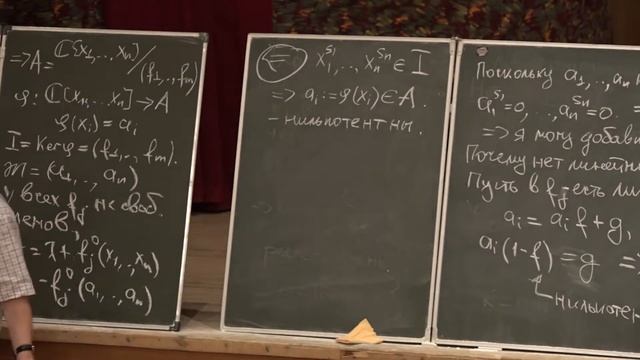 ⇒A = ℂ[x₁,..,xₙ]/(f₁,..,fₘ)
φ: ℂ[x₁,..,xₙ] → A
φ(xᵢ) = aᵢ
I = Ker φ = (f₁,.., fₘ).
m = (a₁,.., aₙ)
у всех fⱼ не своб.
членов
= λ + fⱼ⁰(x₁,..,xₙ)
- fⱼ⁰(a₁,.., aₙ)
⇐ x₁^{s₁},.., xₙ^{sₙ} ∈ I
⇒ aᵢ := φ(xᵢ) ∈ A.
- нильпотентны.
Поскольку a₁,..,aₙ
a₁^{s₁}=0, ..,aₙ^{sₙ}=0.
⇒ я могу добави
Почему нет линейн
Пусть в fⱼ есть ли
aᵢ = aᵢ f + g,
aᵢ(1-f) = g ⇒
нильпотен